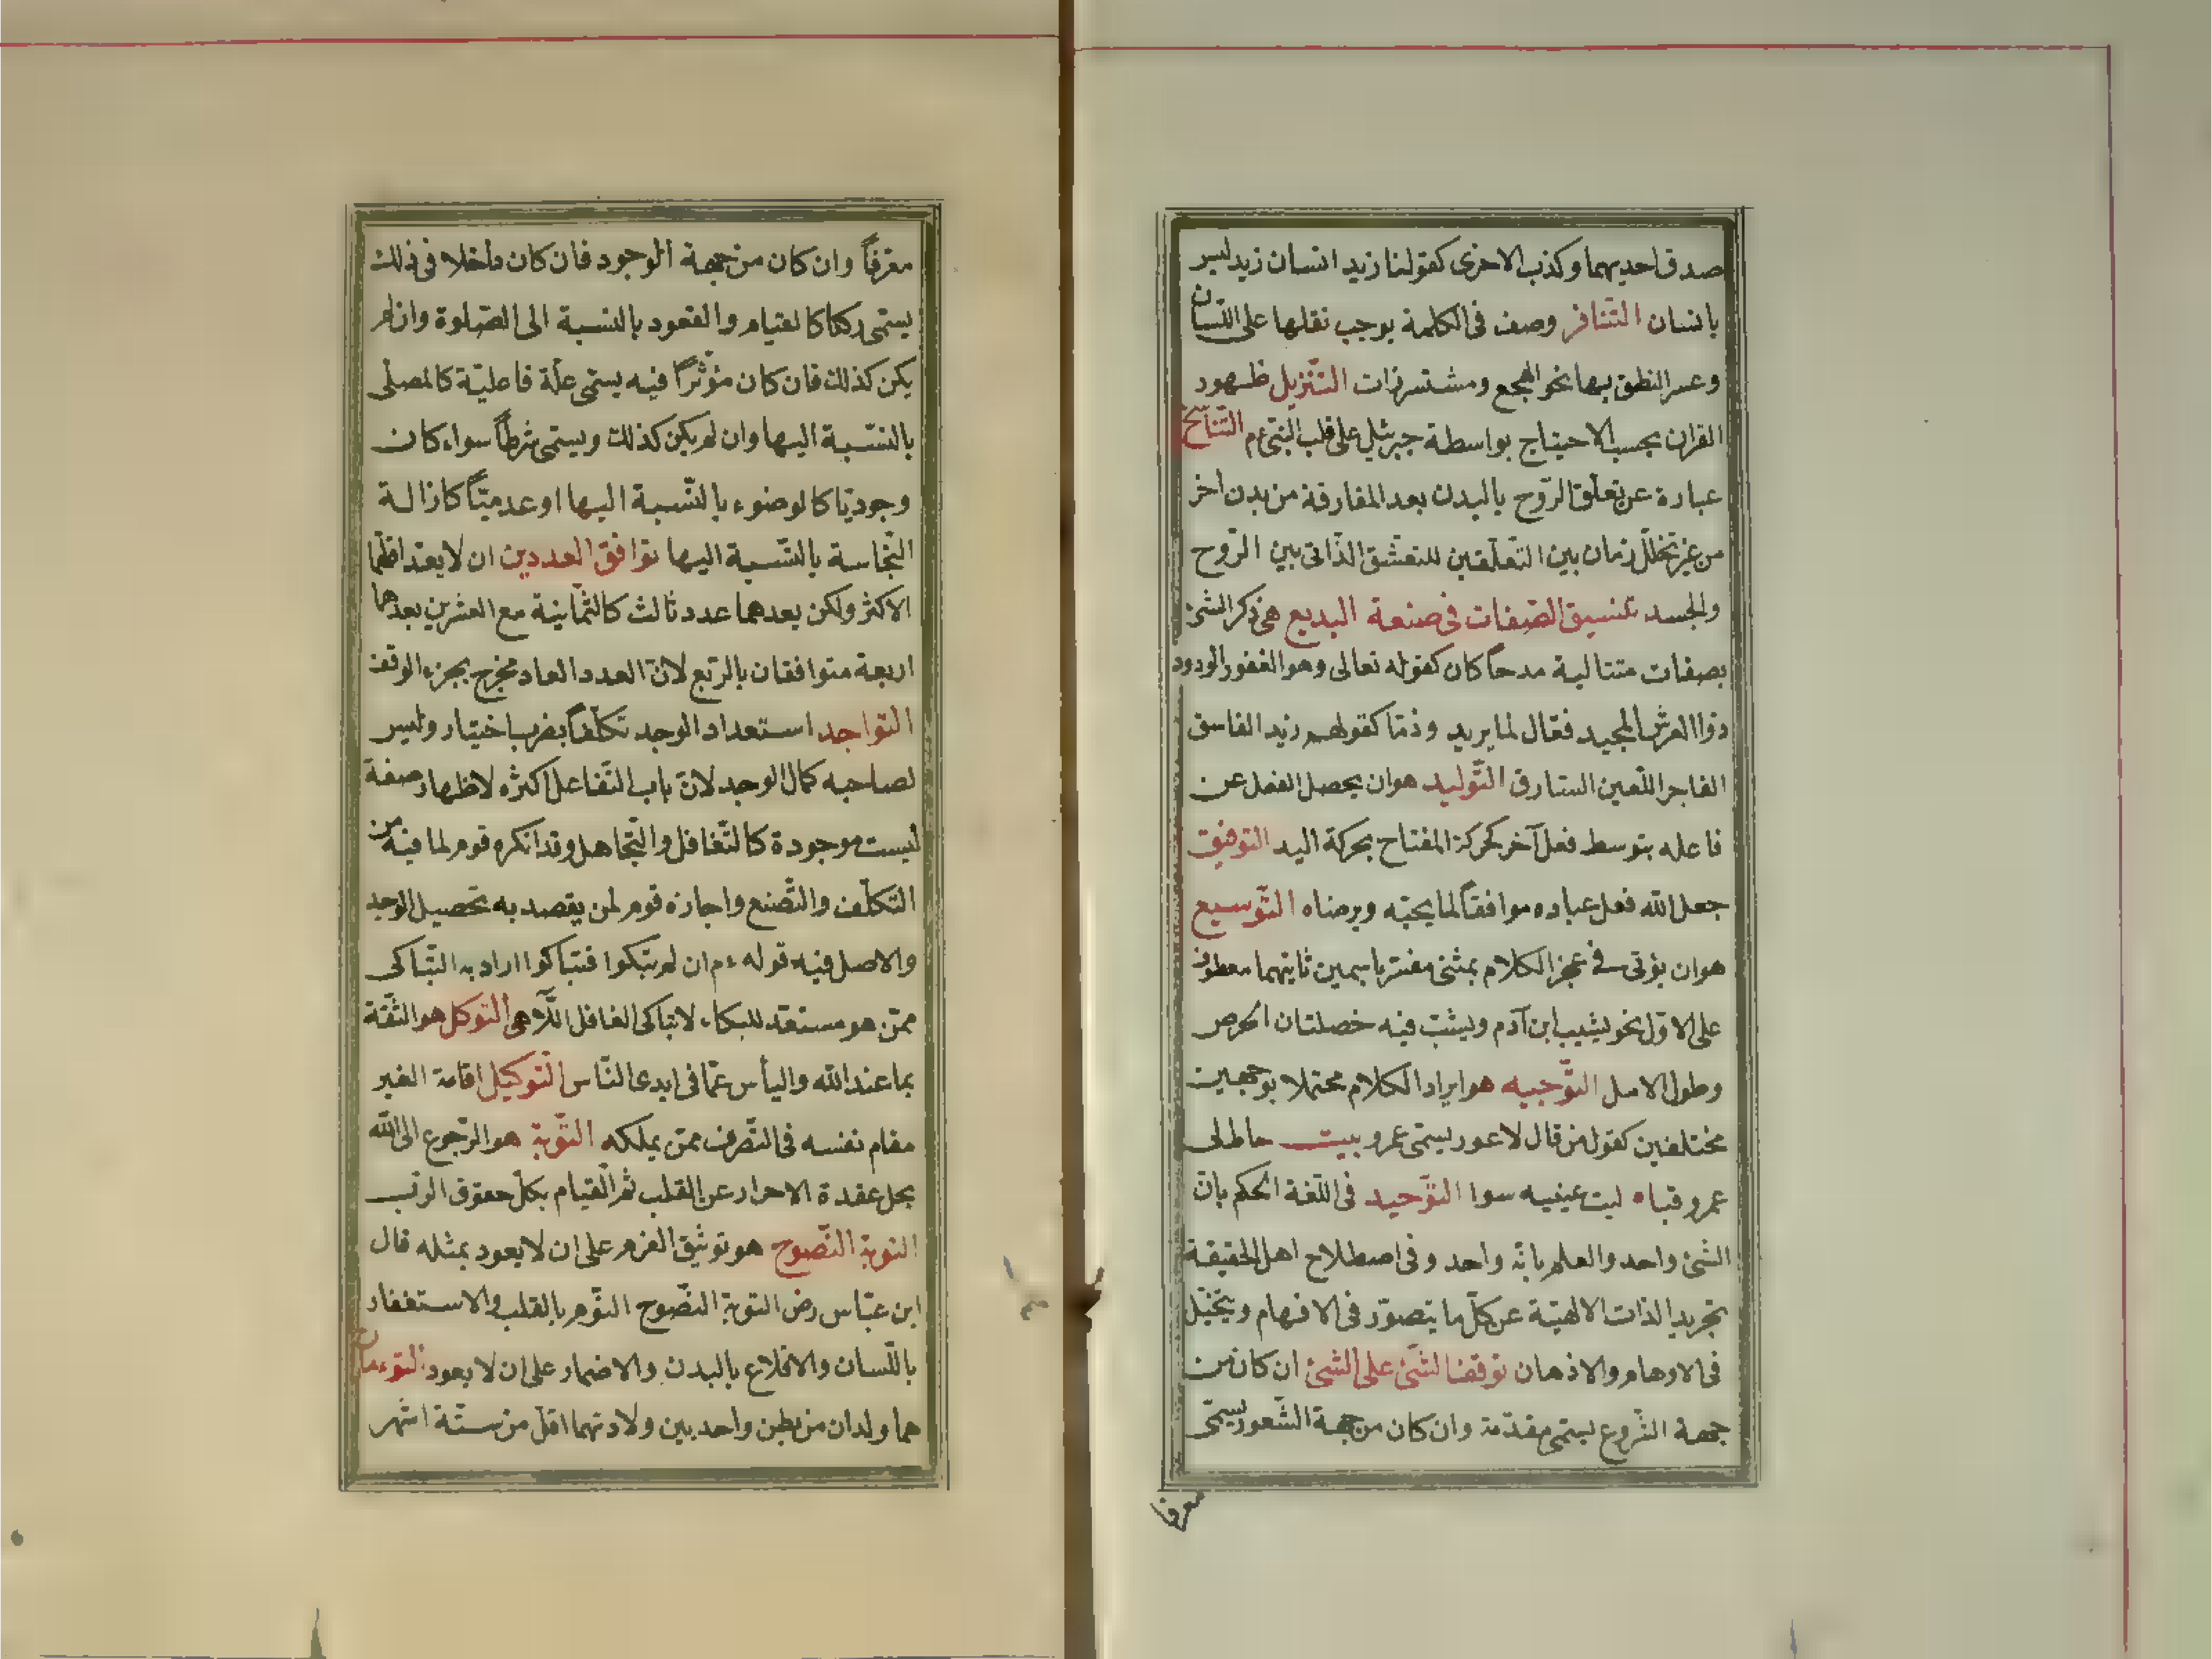 صدق احديهما وكذب الاخرى كقولنا زيد انسان زيد ليس
بانسان التنافر وصف فى الكلمة يوجب ثقلها على اللسان
وعسر النطق بها نحو الهجع ومستشزرات التنزيل ظهور
القران بحسب الاحتياج بواسطة جبرئيل على قلب النبى ءم التناسخ
عبارة عن تعلق الروح بالبدن بعد المفارقة من بدن اخر
من غير تخلل زمان بين التعلقين للتعشق الذاتى بين الروح
والجسد تنسيق الصفات فى صنعة البديع هى ذكر الشئ
بصفات متتالية مدحا كان كقوله تعالى وهو الغفور الودود
ذوا العرش المجيد فعال لما يريد وذما كقولهم زيد الفاسق
الفاجر اللعين السارق التوليد هو ان يحصل الفعل عن
فاعله بتوسط فعل آخر كحركة المفتاح بحركة اليد التوفيق
جعل الله فعل عباده موافقا لما يحبه ويرضاه التوسيع
هو ان يؤتى فى عجز الكلام بمثنى مفسر باسمين ثانيهما معطوف
على الاول نحو يشيب ابن آدم ويشب فيه خصلتان الحرص
وطول الامل التوجيه هو ايراد الكلام محتملا بوجهين
مختلفين كقول من قال لاعور يسمى عمرو بيت خاط لى
عمرو قباء ليت عينيه سوا التوحيد فى اللغة الحكم بان
الشئ واحد والعلم بانه واحد وفى اصطلاح اهل الحقيقة
تجريد الذات الالهية عن كل ما يتصور فى الافهام ويتخيل
فى الاوهام والاذهان توقف الشئ على الشئ ان كان من
جهة الشروع يسمى مقدمة وان كان من جهة الشعور يسمى
معرفا
معرفاً وان كان من جهة الوجود فان كان داخلا فى ذلك
يسمى ركنا كالقيام والقعود بالنسبة الى الصلوة وان لم
يكن كذلك فان كان مؤثرا فيه يسمى علة فاعلية كالمصلى
بالنسبة اليها وان لم يكن كذلك ويسمى شرطا سواء كان
وجوديا كالوضوء بالنسبة اليها او عدميا كازالة
النجاسة بالنسبة اليها توافق العددين ان لا يعد اقلهما
الاكثر ولكن يعدهما عدد ثالث كالثمانية مع العشرين يعدهما
اربعة متوافقان بالربع لان العدد العاد مخرج بجزء الوفق
التواجد استعداد الوجد تكلفا بضرب اختيار وليس
لصاحبه كمال الوجد لان باب التفاعل اكثره لاظهار صفة
ليست موجودة كالتغافل والتجاهل وقد انكره قوم لما فيه من
التكلف والتصنع واجازه قوم لمن يقصد به تحصيل الوجد
والاصل فيه قوله ءم ان لم تبكوا فتباكوا اراد به التباكى
ممن هو مستعد للبكاء لا تباكى الغافل اللاهى التوكل هو الثقة
بما عند الله واليأس عما فى ايدى الناس التوكيل اقامة الغير
مقام نفسه فى التصرف ممن يملكه التوبة هو الرجوع الى الله
بحل عقدة الاحرار عن القلب ثم القيام بكل حقوق الرب
التوبة النصوح هو توثيق العزم على ان لا يعود بمثله قال
ابن عباس رض التوبة النصوح النوم بالقلب والاستغفار
باللسان والاقلاع بالبدن والاضمار على ان لا يعود التوءمان
هما ولدان من بطن واحد بين ولادتهما اقل من ستة اشهر